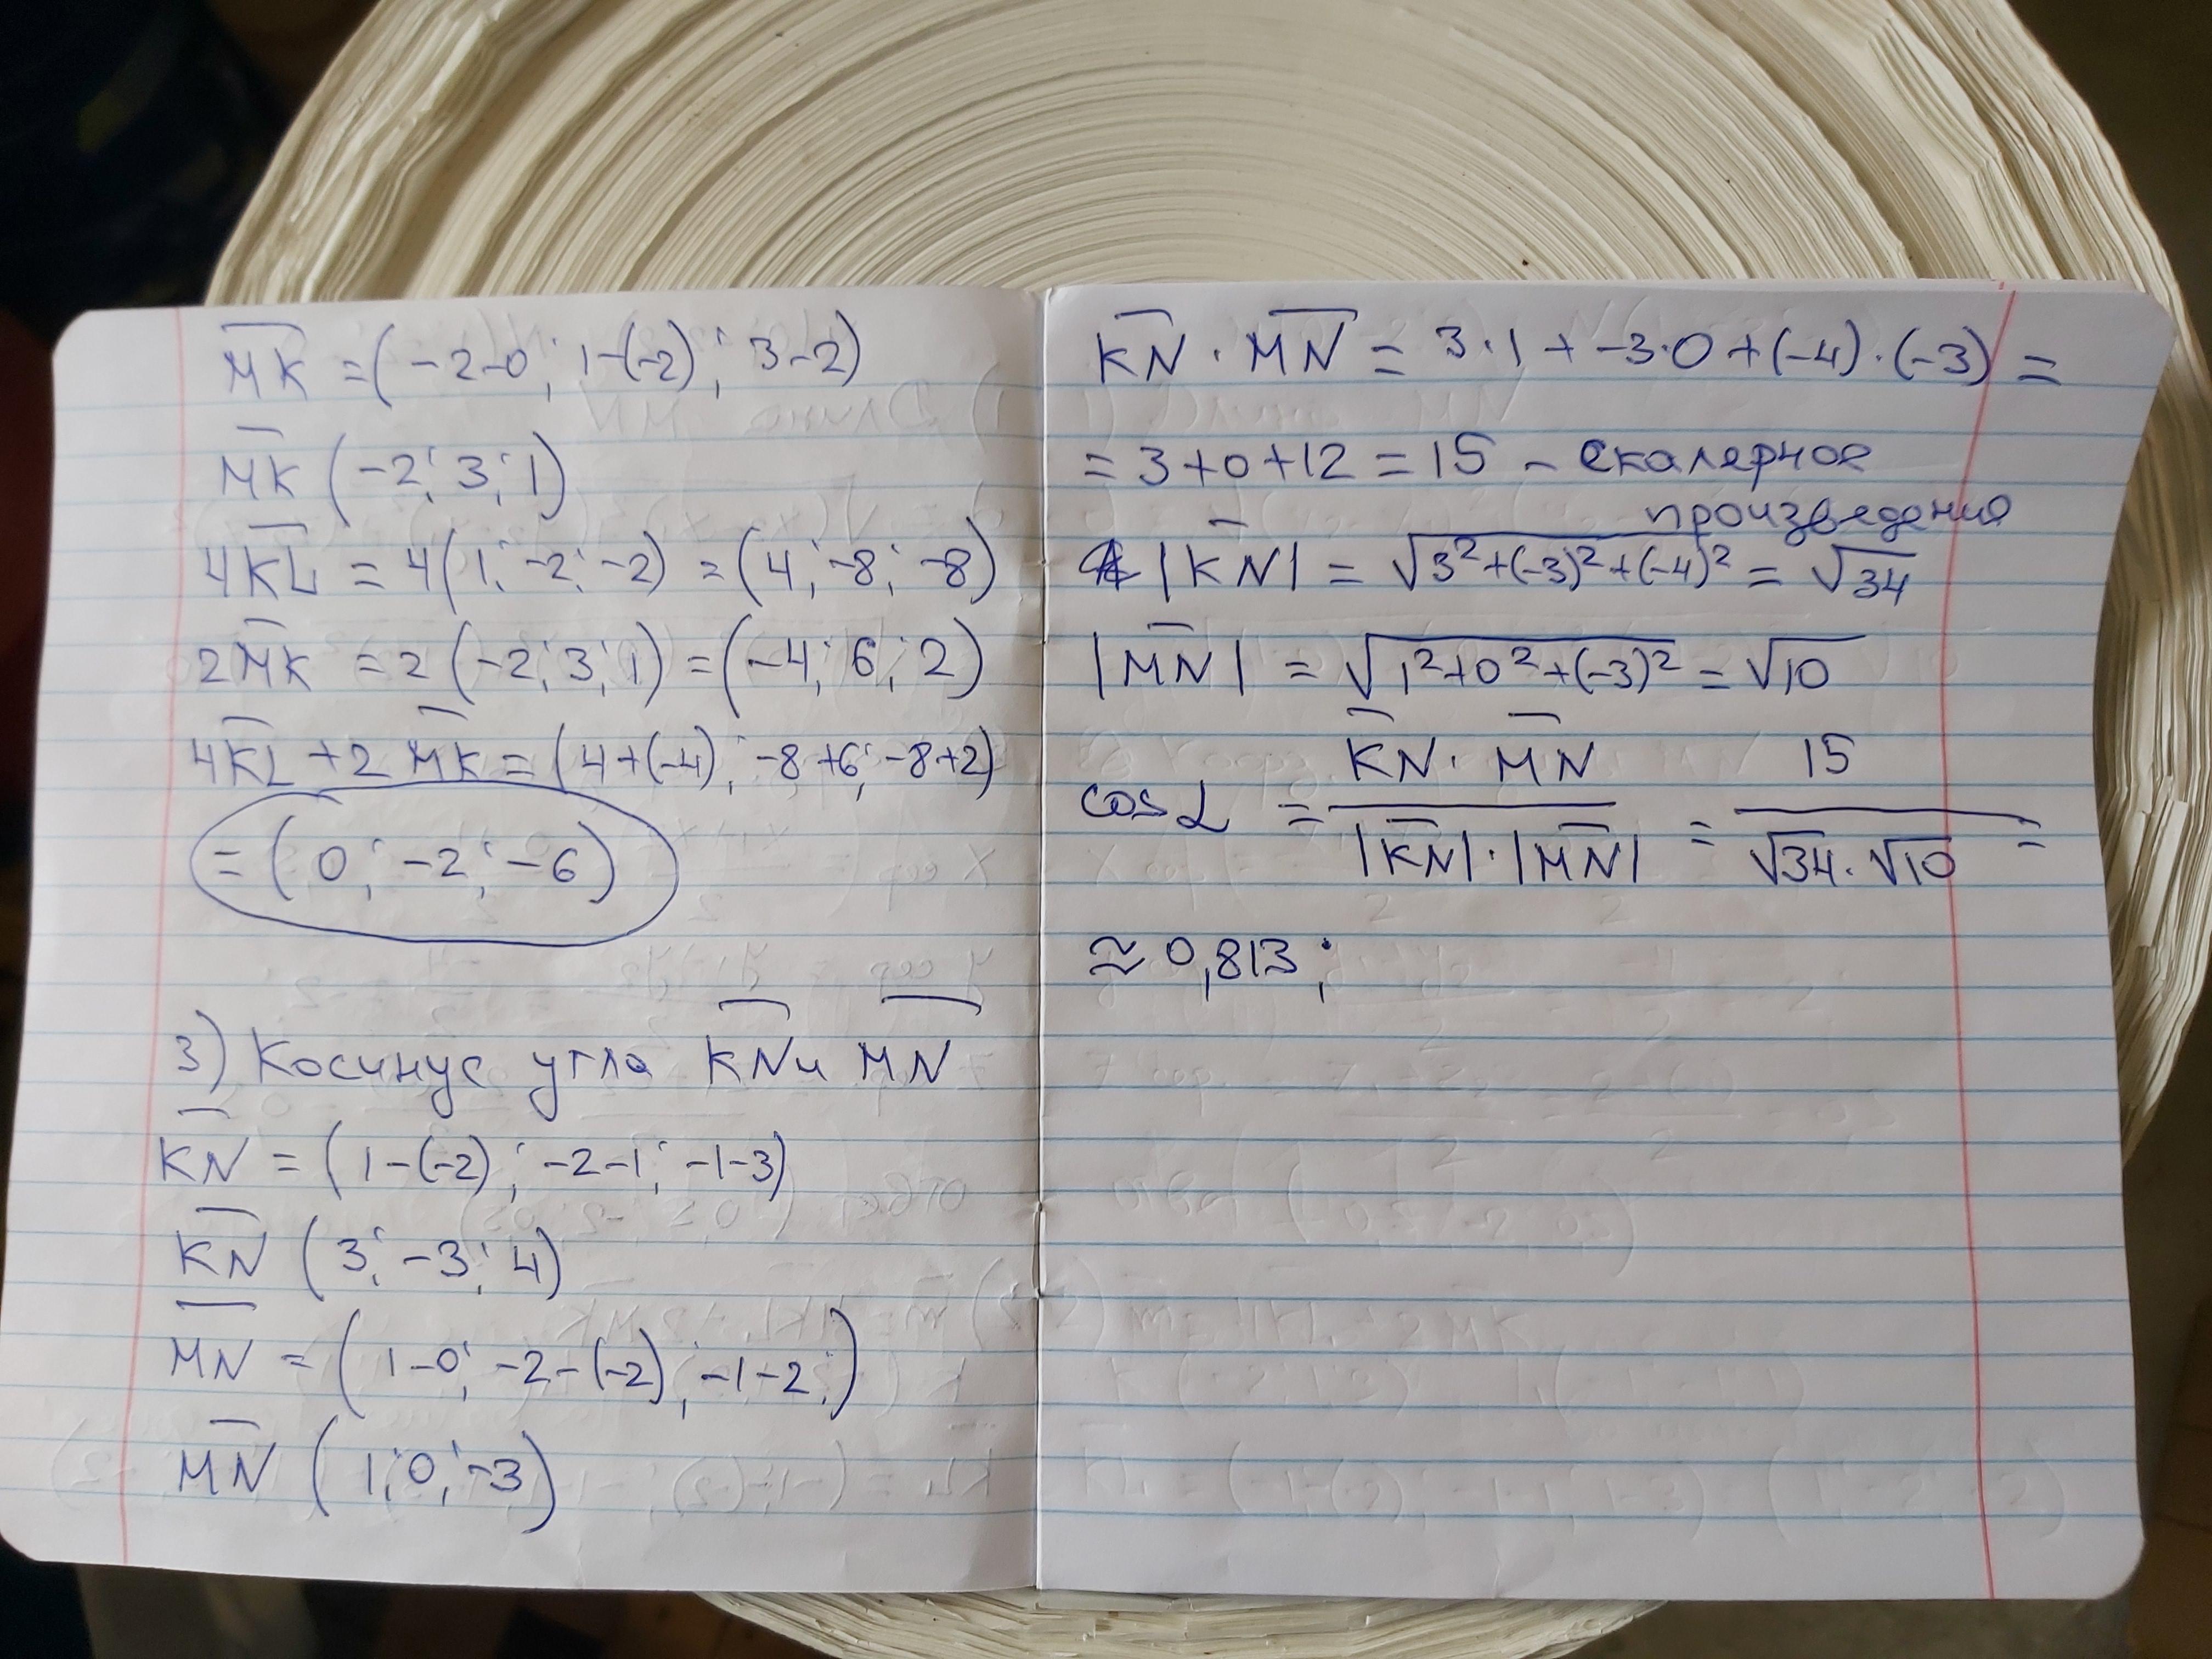 MK = (-2-0; 1-(-2); 3-2)
MK (-2; 3; 1)
4KL = 4(1; -2; -2) = (4; -8; -8)
2MK = 2(-2; 3; 1) = (-4; 6; 2)
4KL + 2MK = (4+(-4); -8+6; -8+2)
= (0; -2; -6)
3) Косинус угла KN и MN
KN = (1-(-2); -2-1; -1-3)
KN (3; -3; 4)
MN = (1-0; -2-(-2); -1-2;)
MN (1; 0; -3)
KN · MN = 3·1 + -3·0 + (-4)·(-3) =
= 3+0+12 = 15 - скалерное
произведения
|KN| = √3²+(-3)²+(-4)² = √34
|MN| = √1²+0²+(-3)² = √10
cos α = KN · MN / |KN|·|MN| = 15 / √34·√10 =
≈ 0,813;